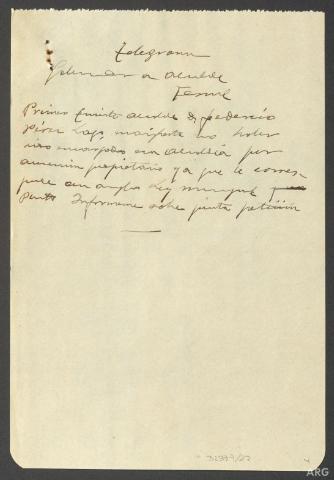 Telegrama
Gobernador a Alcalde
Ferrol
Primer Teniente alcalde D. Federico
Pérez Lago, manifiesta no haber
sido encargado esa alcaldía por
ausencia propietario ya que le corres-
ponde con arreglo Ley municipal
punto Informeme sobre justa petición
32979/22
4
ARG